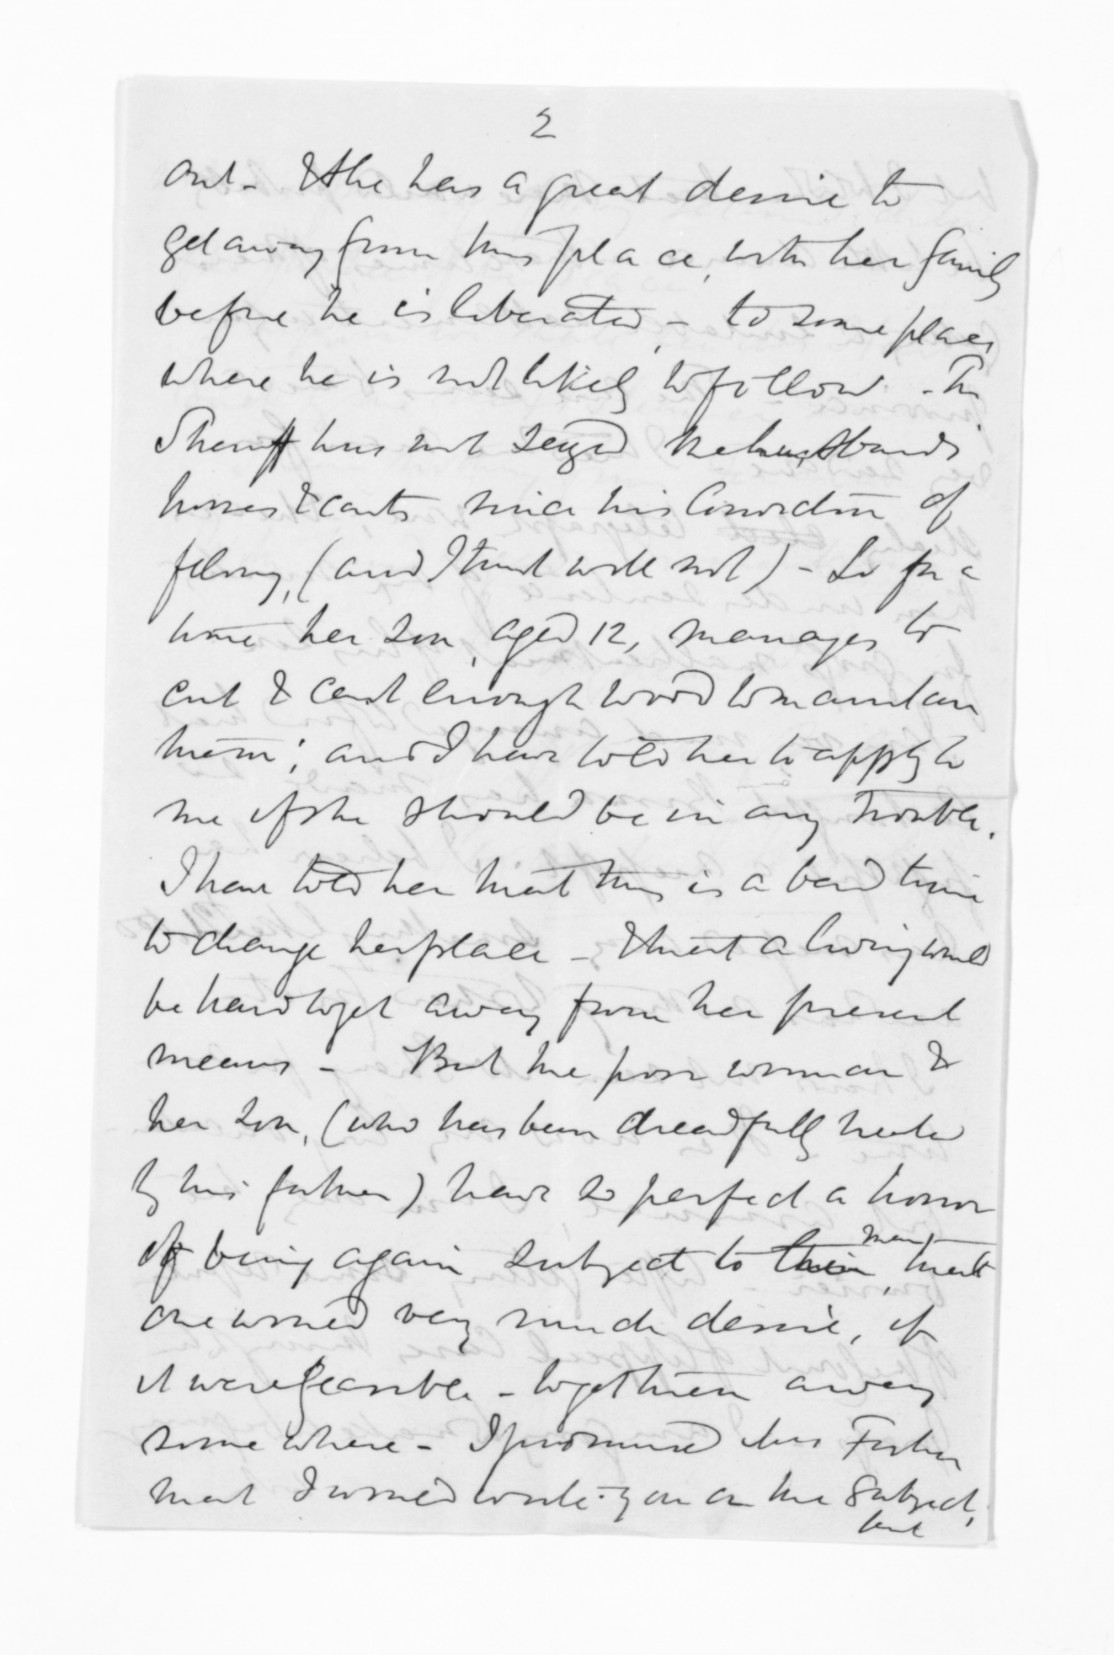 2
out - & she has a great desire to
get away from this place, with her family
before he is liberated, - to some place
where he is not likely to follow - The
Sheriff has not seized the husbands
horses & carts since his conviction of
felony, (and I trust will not) - So for a
time her son, aged 12, manages to
cut & cart enough wood to maintain
them; and I have told her to apply to
me if she should be in any trouble.
I have told her that this is a bad time
to change her place - & that a living would
be hard to get away from her present
means - But the poor woman &
her son, (who has been dreadfully treated
by his father) have so perfect a horror
of being again subject to him, that
one would very much desire, if
it were feasible - to get them away
some where - I promised
that I would write you on the subject,
but